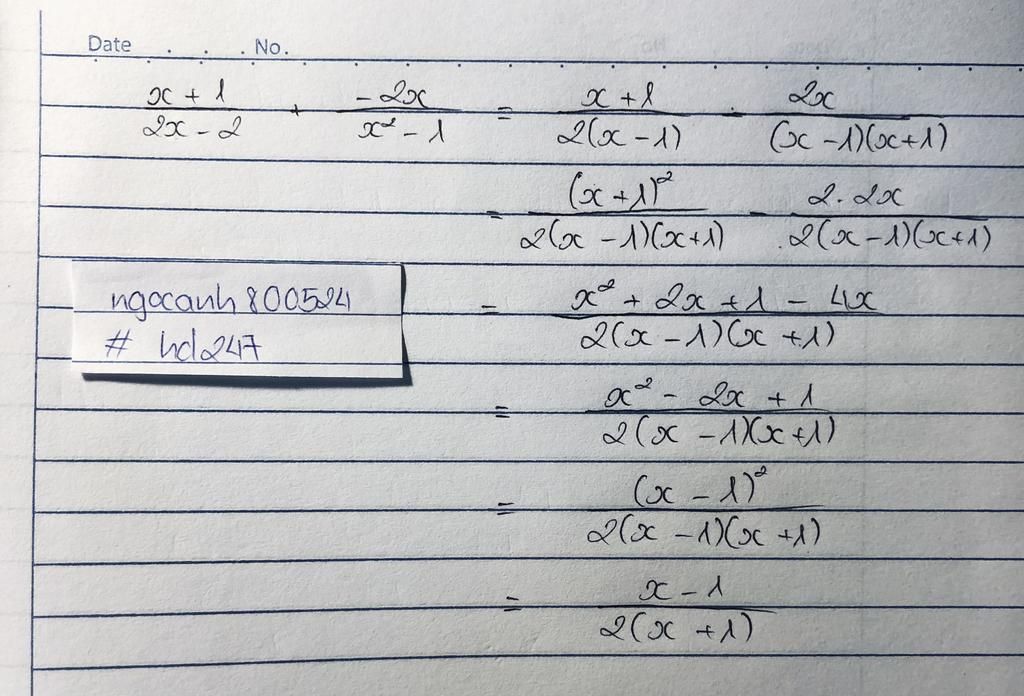 Date . . . No.
x + 1 / 2x - 2 + -2x / x² - 1 = x + 1 / 2(x - 1) - 2x / (x - 1)(x + 1)
= (x + 1)² / 2(x - 1)(x + 1) - 2. 2x / 2(x - 1)(x + 1)
ngocanh800524
# hd247
= x² + 2x + 1 - 4x / 2(x - 1)(x + 1)
= x² - 2x + 1 / 2(x - 1)(x + 1)
= (x - 1)² / 2(x - 1)(x + 1)
= x - 1 / 2(x + 1)